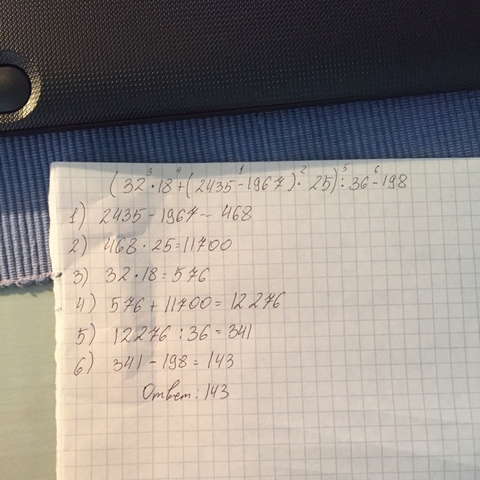 (32·18+(2435-1967)·25):36-198
1) 2435-1967=468
2) 468·25=11700
3) 32·18=576
4) 576+11700=12276
5) 12276:36=341
6) 341-198=143
Ответ:143